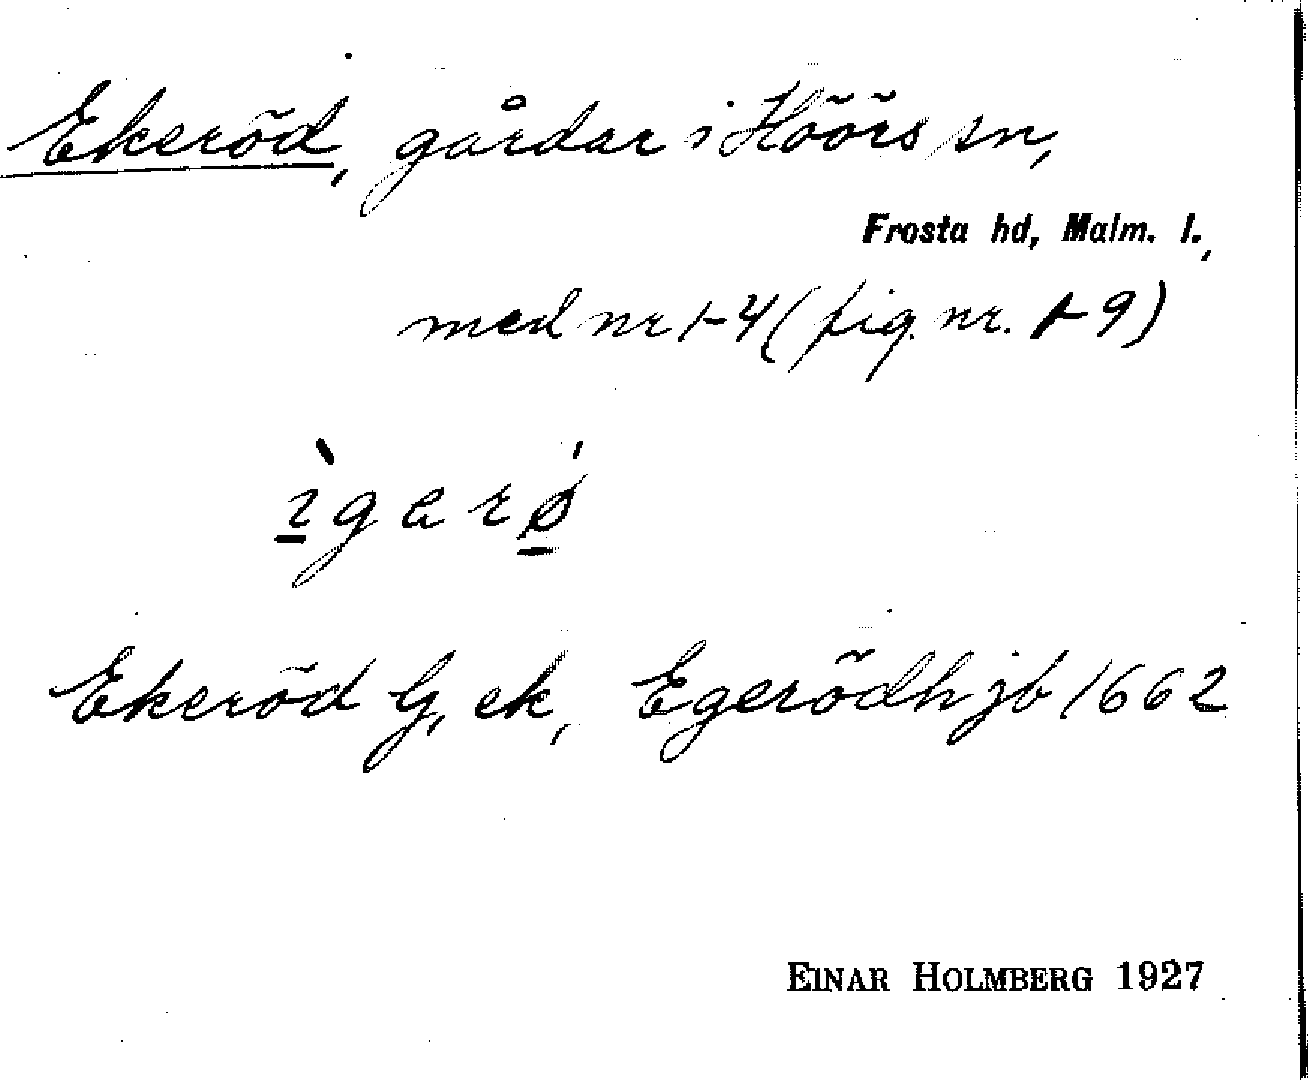 Ekeröd, gårdar i Höörs sn,
Frosta hd, Malm. l.,
med nr 1-4 (fig. nr. 1-9)
ìgarǿ
Ekeröd G, ek, Egerödh jb 1662
EINAR HOLMBERG 1927